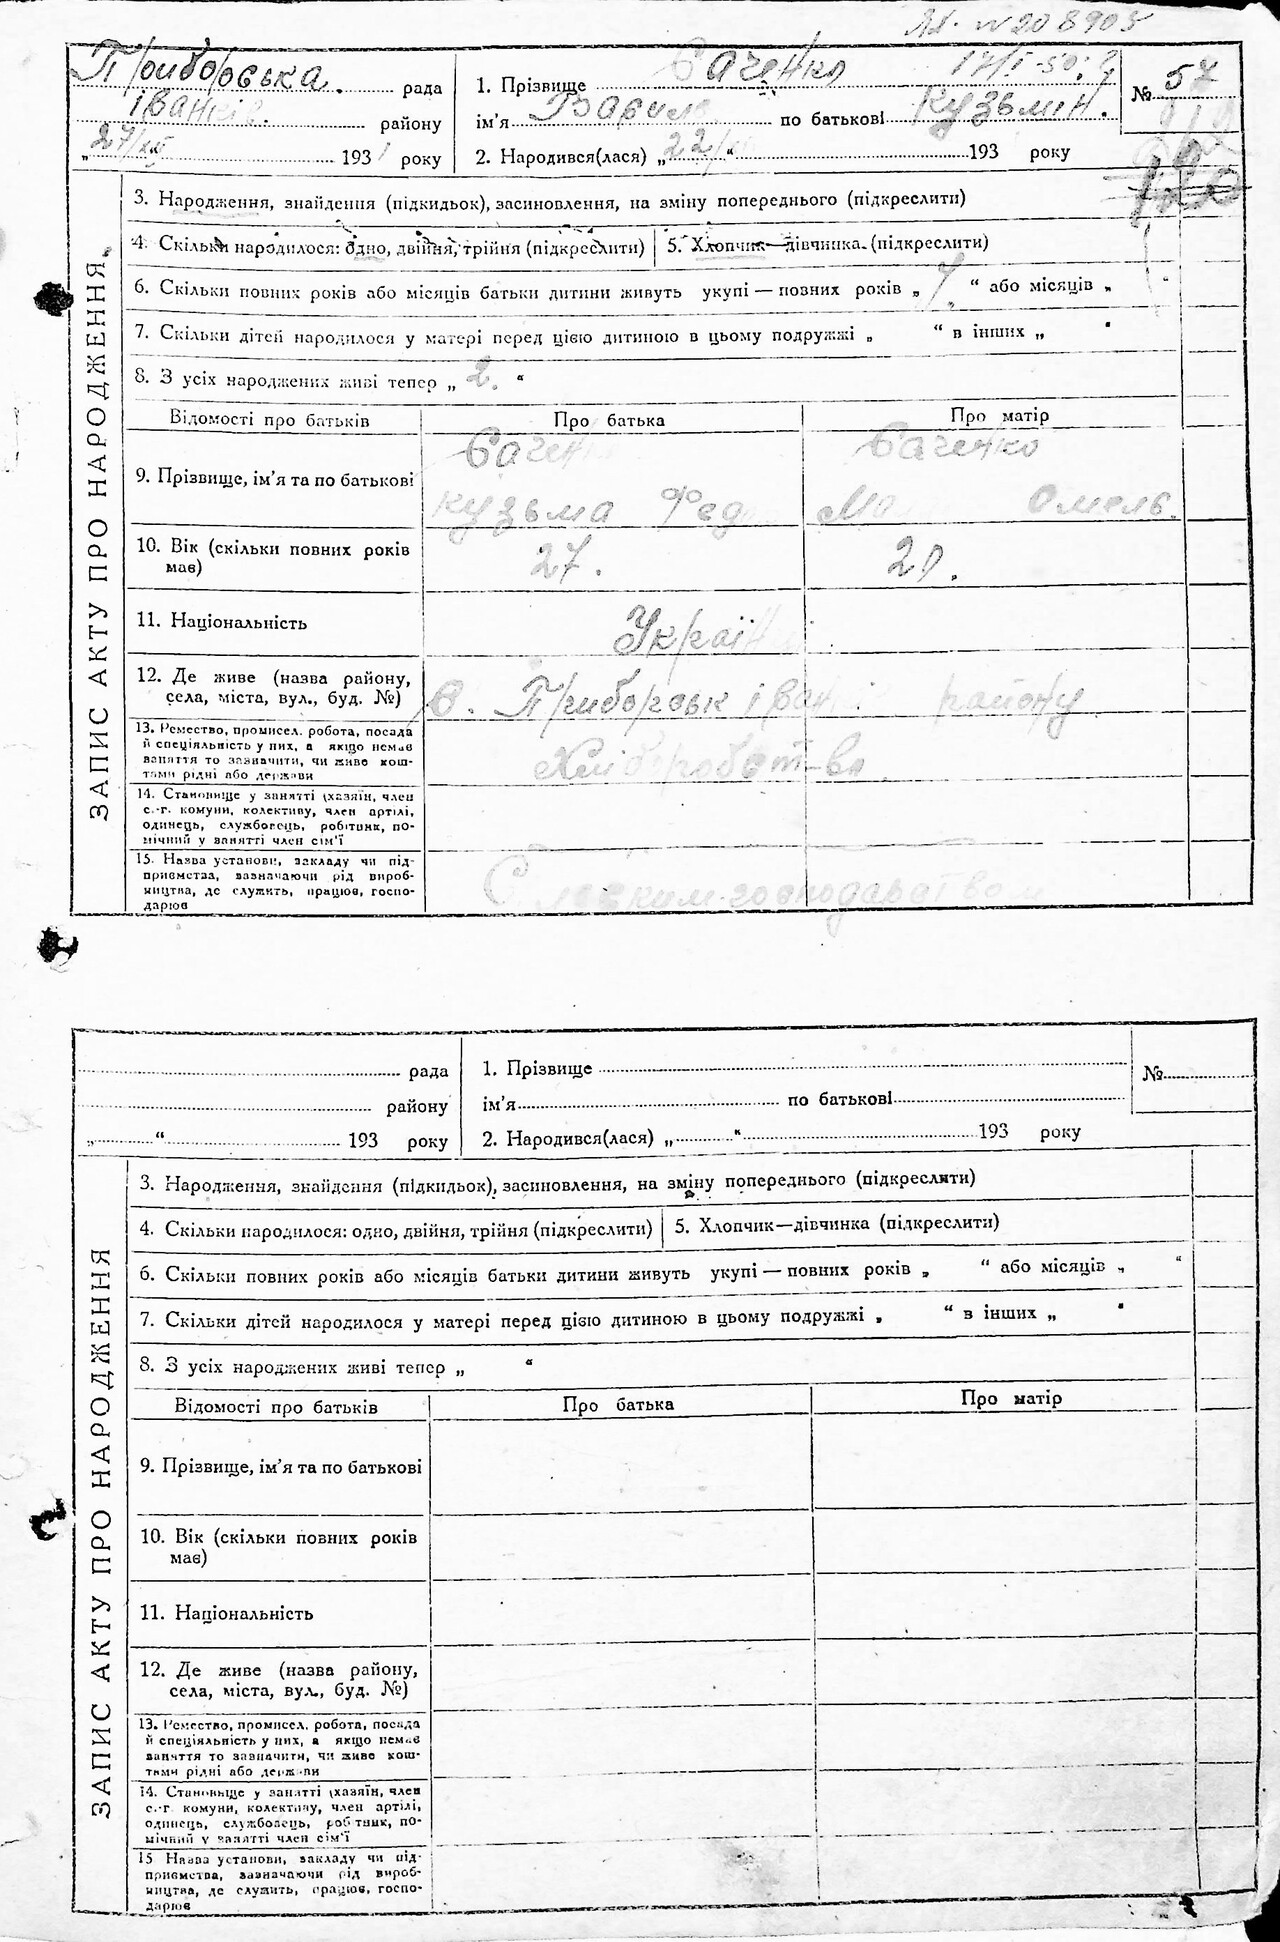 № 208905
Приборська. рада
Іванків. району
„27/XII 193 року
1. Прізвище Саченко 17/I-50.
ім'я Василь по батькові Кузьмін.
2. Народився(лася) „22/ “ 193 року
№ 57
120
ЗАПИС АКТУ ПРО НАРОДЖЕННЯ
3. Народження, знайдення (підкидьок), засиновлення, на зміну попереднього (підкреслити)
4. Скільки народилося: одно, двійня, трійня (підкреслити) 5. Хлопчик—дівчинка (підкреслити)
6. Скільки повних років або місяців батьки дитини живуть укупі — повних років „ “ або місяців „ “
7. Скільки дітей народилося у матері перед цією дитиною в цьому подружжі „ “ в інших „ “
8. З усіх народжених живі тепер „ 2. “
Відомості про батьків Про батька Про матір
9. Прізвище, ім'я та по батькові
Саченко Саченко
Кузьма Фед Омель.
10. Вік (скільки повних років має) 27. 20.
11. Національність Україн
12. Де живе (назва району, села, міста, вул., буд. №) С. Приборськ Іванк району
13. Ремество, промисел, робота, посада й спеціяльність у них, а якщо немає заняття то зазначити, чи живе коштами рідні або держави
Хліборобств
14. Становище у занятті (хазяїн, член с.-г. комуни, колективу, член артілі, одинець, службовець, робітник, помічний у занятті член сім'ї
15. Назва установи, закладу чи підприємства, зазначаючи рід виробництва, де служить, працює, господарює
господарством
рада
району
„ “ 193 року
1. Прізвище
ім'я по батькові
2. Народився(лася) „ “ 193 року
№
ЗАПИС АКТУ ПРО НАРОДЖЕННЯ
3. Народження, знайдення (підкидьок), засиновлення, на зміну попереднього (підкреслити)
4. Скільки народилося: одно, двійня, трійня (підкреслити) 5. Хлопчик—дівчинка (підкреслити)
6. Скільки повних років або місяців батьки дитини живуть укупі — повних років „ “ або місяців „ “
7. Скільки дітей народилося у матері перед цією дитиною в цьому подружжі „ “ в інших „ “
8. З усіх народжених живі тепер „ “
Відомості про батьків Про батька Про матір
9. Прізвище, ім'я та по батькові
10. Вік (скільки повних років має)
11. Національність
12. Де живе (назва району, села, міста, вул., буд. №)
13. Ремество, промисел, робота, посада й спеціяльність у них, а якщо немає заняття то зазначити, чи живе коштами рідні або держави
14. Становище у занятті (хазяїн, член с.-г. комуни, колективу, член артілі, одинець, службовець, робітник, помічний у занятті член сім'ї
15 Назва установи, закладу чи підприємства, зазначаючи рід виробництва, де служить, працює, господарює